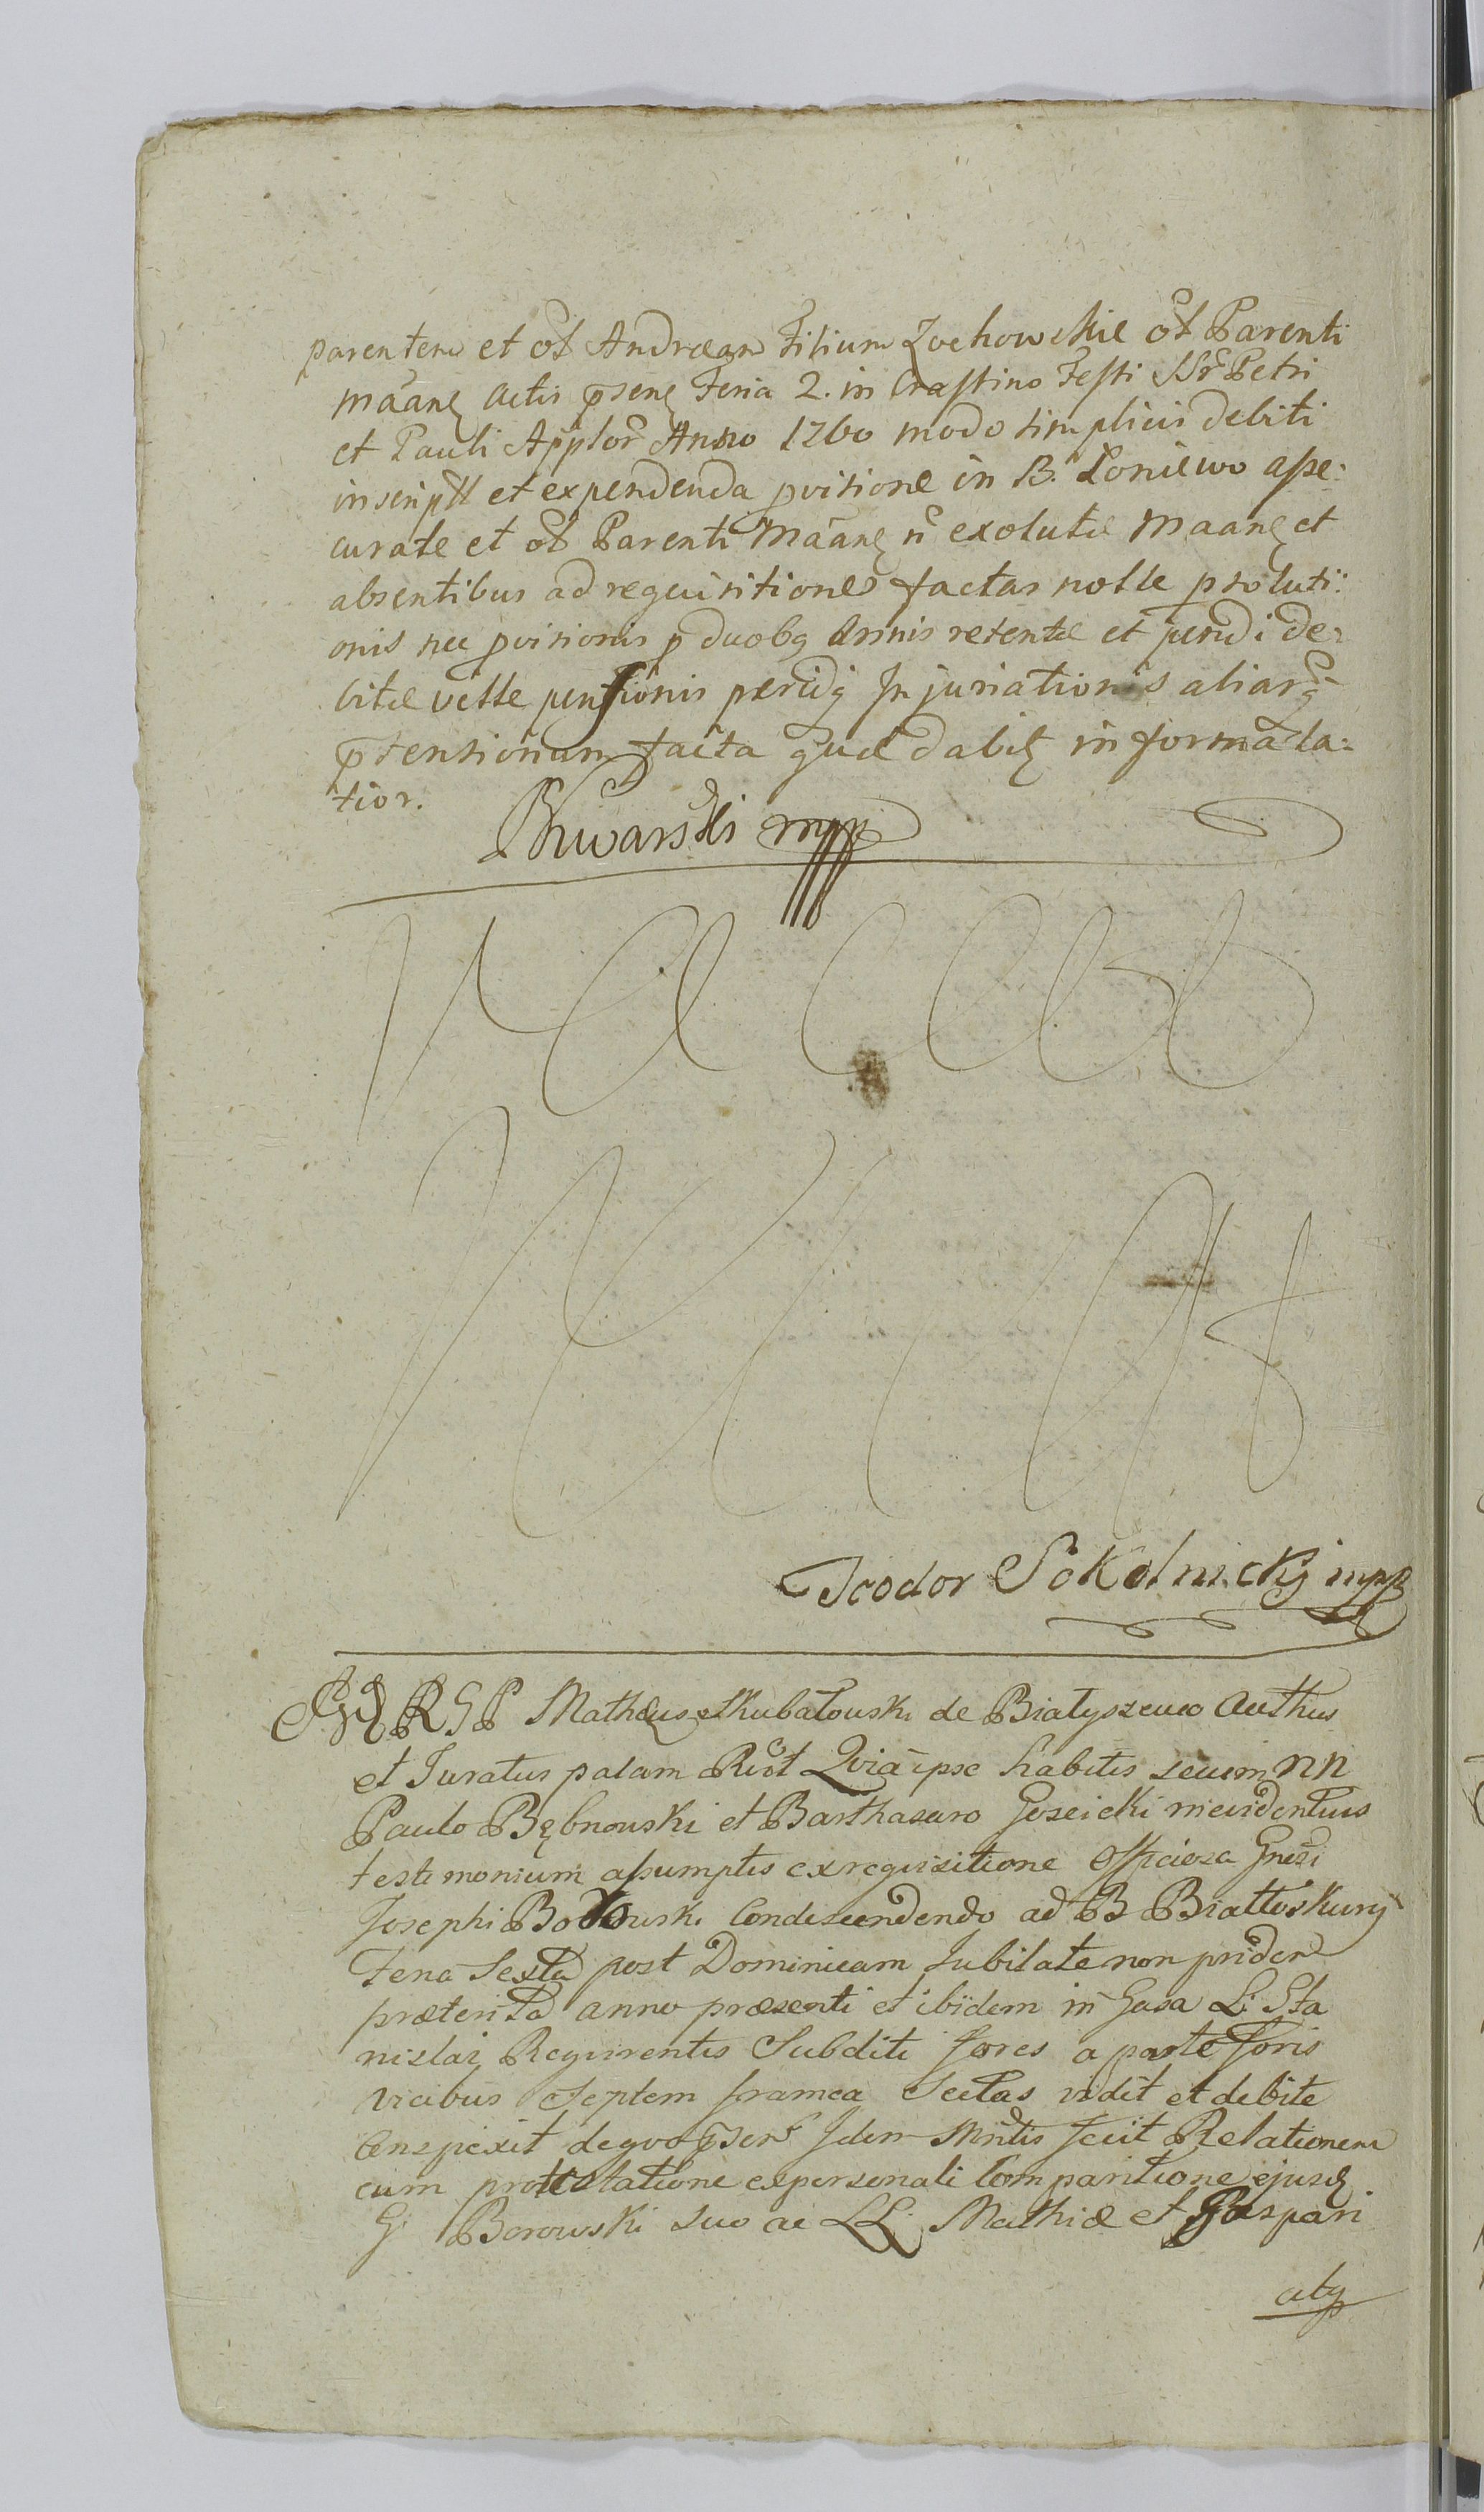 parentem et oł Andræam Filium Żochowskie oł Parenti
Māanę Actis p̄senę Feria 2. in Crastino Festi SSr Petri
et Pauli Applor Anno 1760 modo simplicis debiti
inscriptt et expendenda pvisione in B. Łoniewo asse-
curate et oł Parenti Māanę n exolutæ Maanę et
absentibus ad requisitiones factas nolle psoluti-
onis nec pvisionis p duobq Annis retentæ et pendi de-
bitæ velle pensionis
Injuriationis aliarq
p̄tensionum facta quæ dabiʒ in forma la-
tior.
mpp
Teodor Sokolnickj mpp
R S P Mathæus Skubatouski de Białyszewo Authus
et Juratus palam Rłt Quia ipse habitis secum nn
Paulo Bębnouski et Barthasaro Goscicki in evidentius
testimonium assumptis ex requisitione Officiosa Gnesi
Josephi Borouski Condescendendo ad B Białłoskury
Feria Sexta post Dominicam Jubilate non pridem
præterita anno præsenti et ibidem in Casa L. Sta
nislai Requirentis Subditi fores a parte foris
vicibus Septem framea Sectas vidit et debite
Conspexit de quo Idem Mntis fecit Relationem
cum protestatione ex personali Comparitione ejusd
G. Borowski suo ac LL. Mathiæ et Gaspari
atq